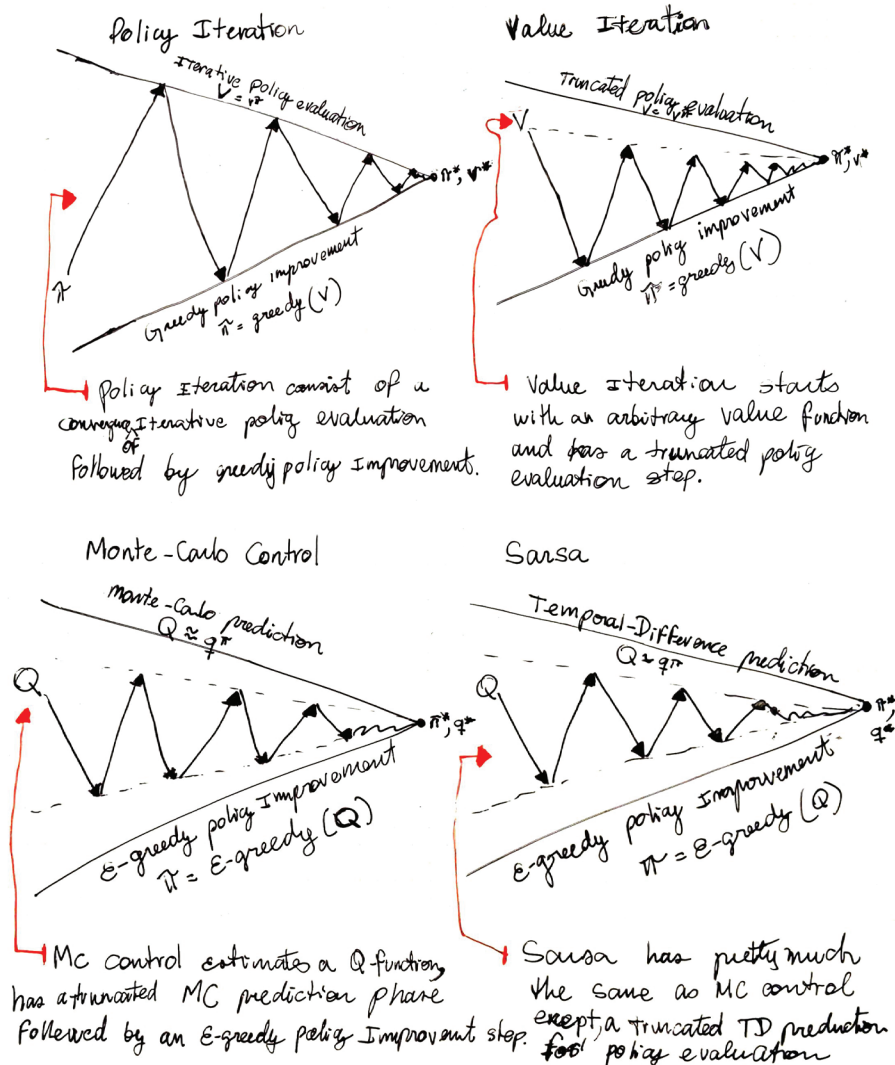 Policy Iteration
Iterative policy evaluation
V = vπ
π
π*, v*
Greedy policy improvement
π = greedy (V)
Policy Iteration consist of a
converging of Iterative policy evaluation
followed by greedy policy Improvement.
Value Iteration
Truncated policy evaluation
V
π*, v*
Greedy policy improvement
π = greedy (V)
Value Iteration starts
with an arbitrary value function
and has a truncated policy
evaluation step.
Monte-Carlo Control
Monte-Carlo prediction
Q ≈ qπ
Q
π*, q*
ε-greedy policy Improvement
π = ε-greedy (Q)
MC control estimates a Q-function,
has a truncated MC prediction phase
followed by an ε-greedy policy Improvement step.
Sarsa
Temporal-Difference prediction
Q ≈ qπ
Q
π*,
q*
ε-greedy policy Improvement
π = ε-greedy (Q)
Sarsa has pretty much
the same as MC control
except, a truncated TD prediction
for policy evaluation